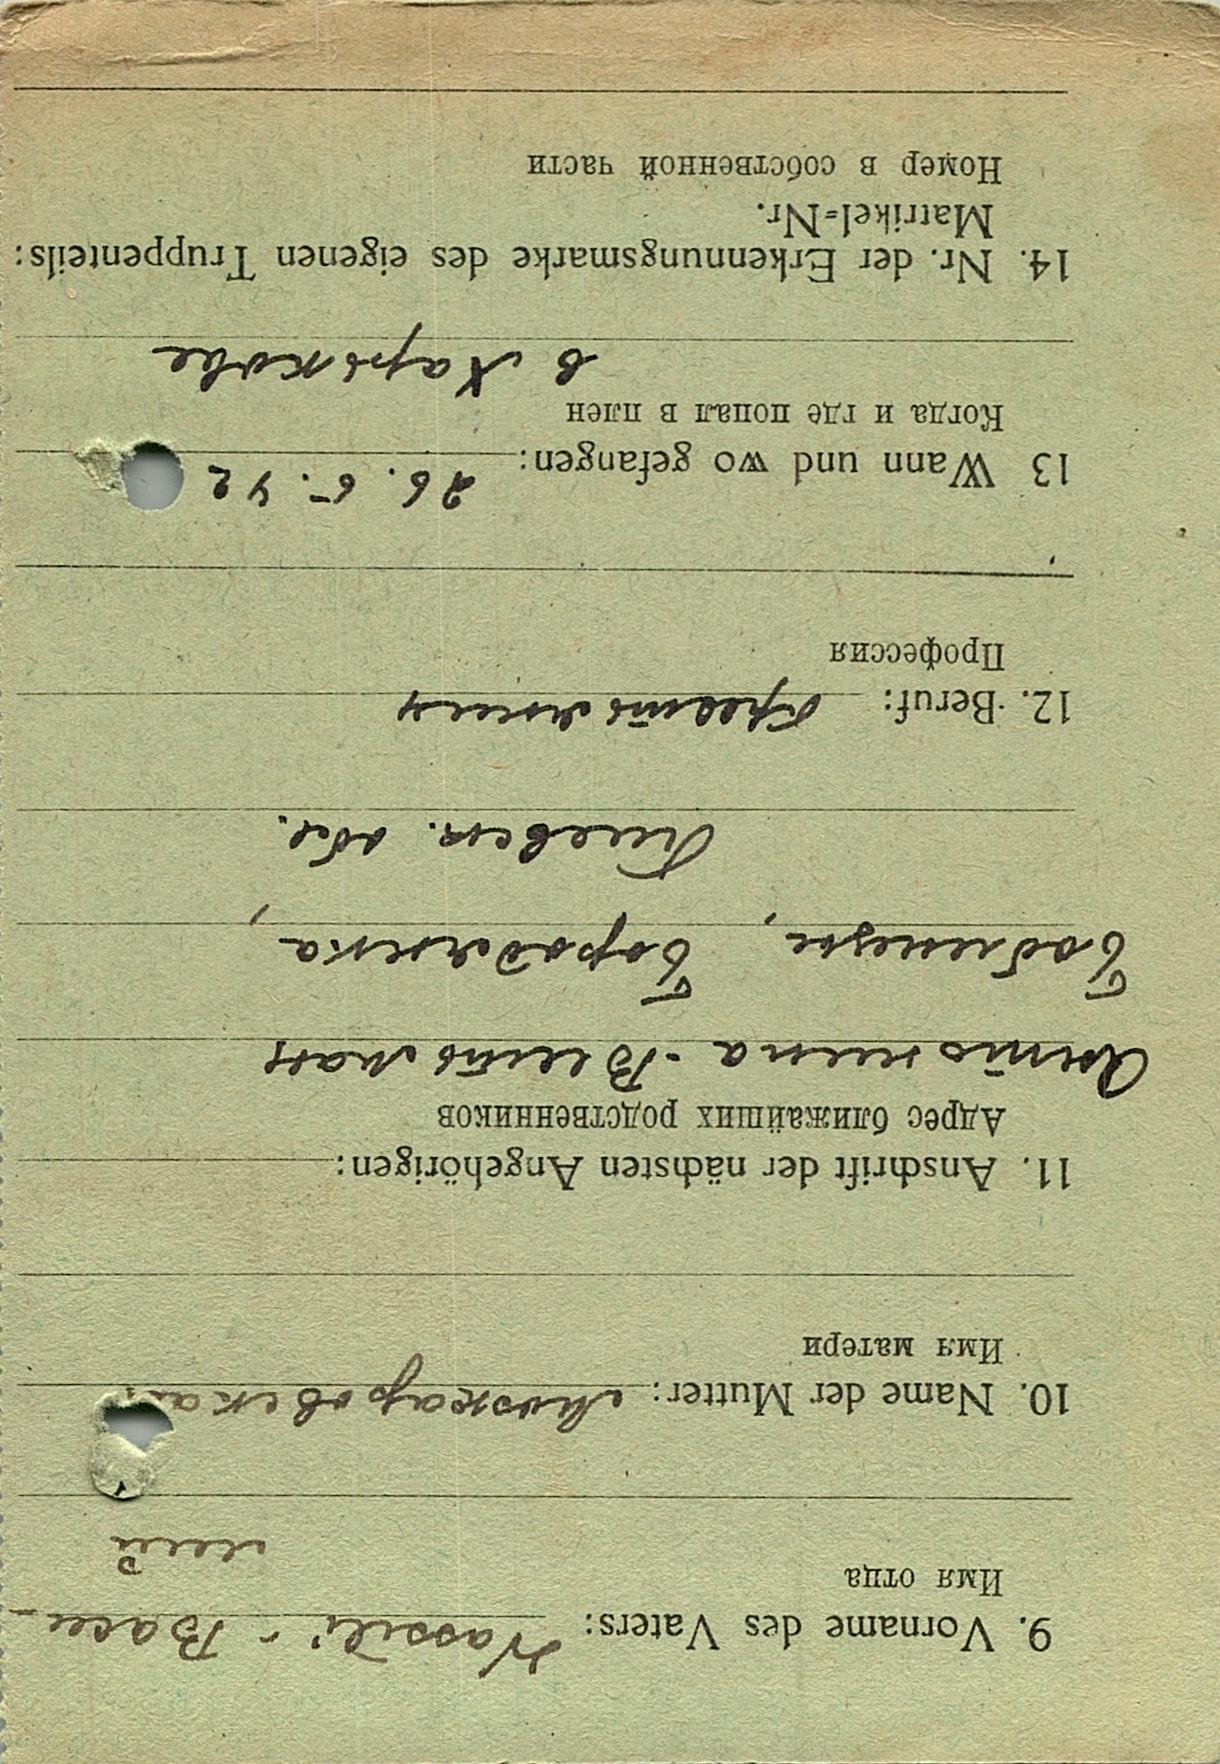 9. Vorname des Vaters: Wassili - Васи-
Имя отца
лий
10. Name der Mutter: Макаровская
Имя матери
11. Anschrift der nächsten Angehörigen:
Адрес ближайших родственников
Антонина - Витьман
Бородянка,
Киевск. обл.
12. Beruf: крестьянин
Профессия
13 Wann und wo gefangen: 26. 5. 42
Когда и где попал в плен
в Харькове
14. Nr. der Erkennungsmarke des eigenen Truppenteils:
Matrikel-Nr.
Номер в собственной части